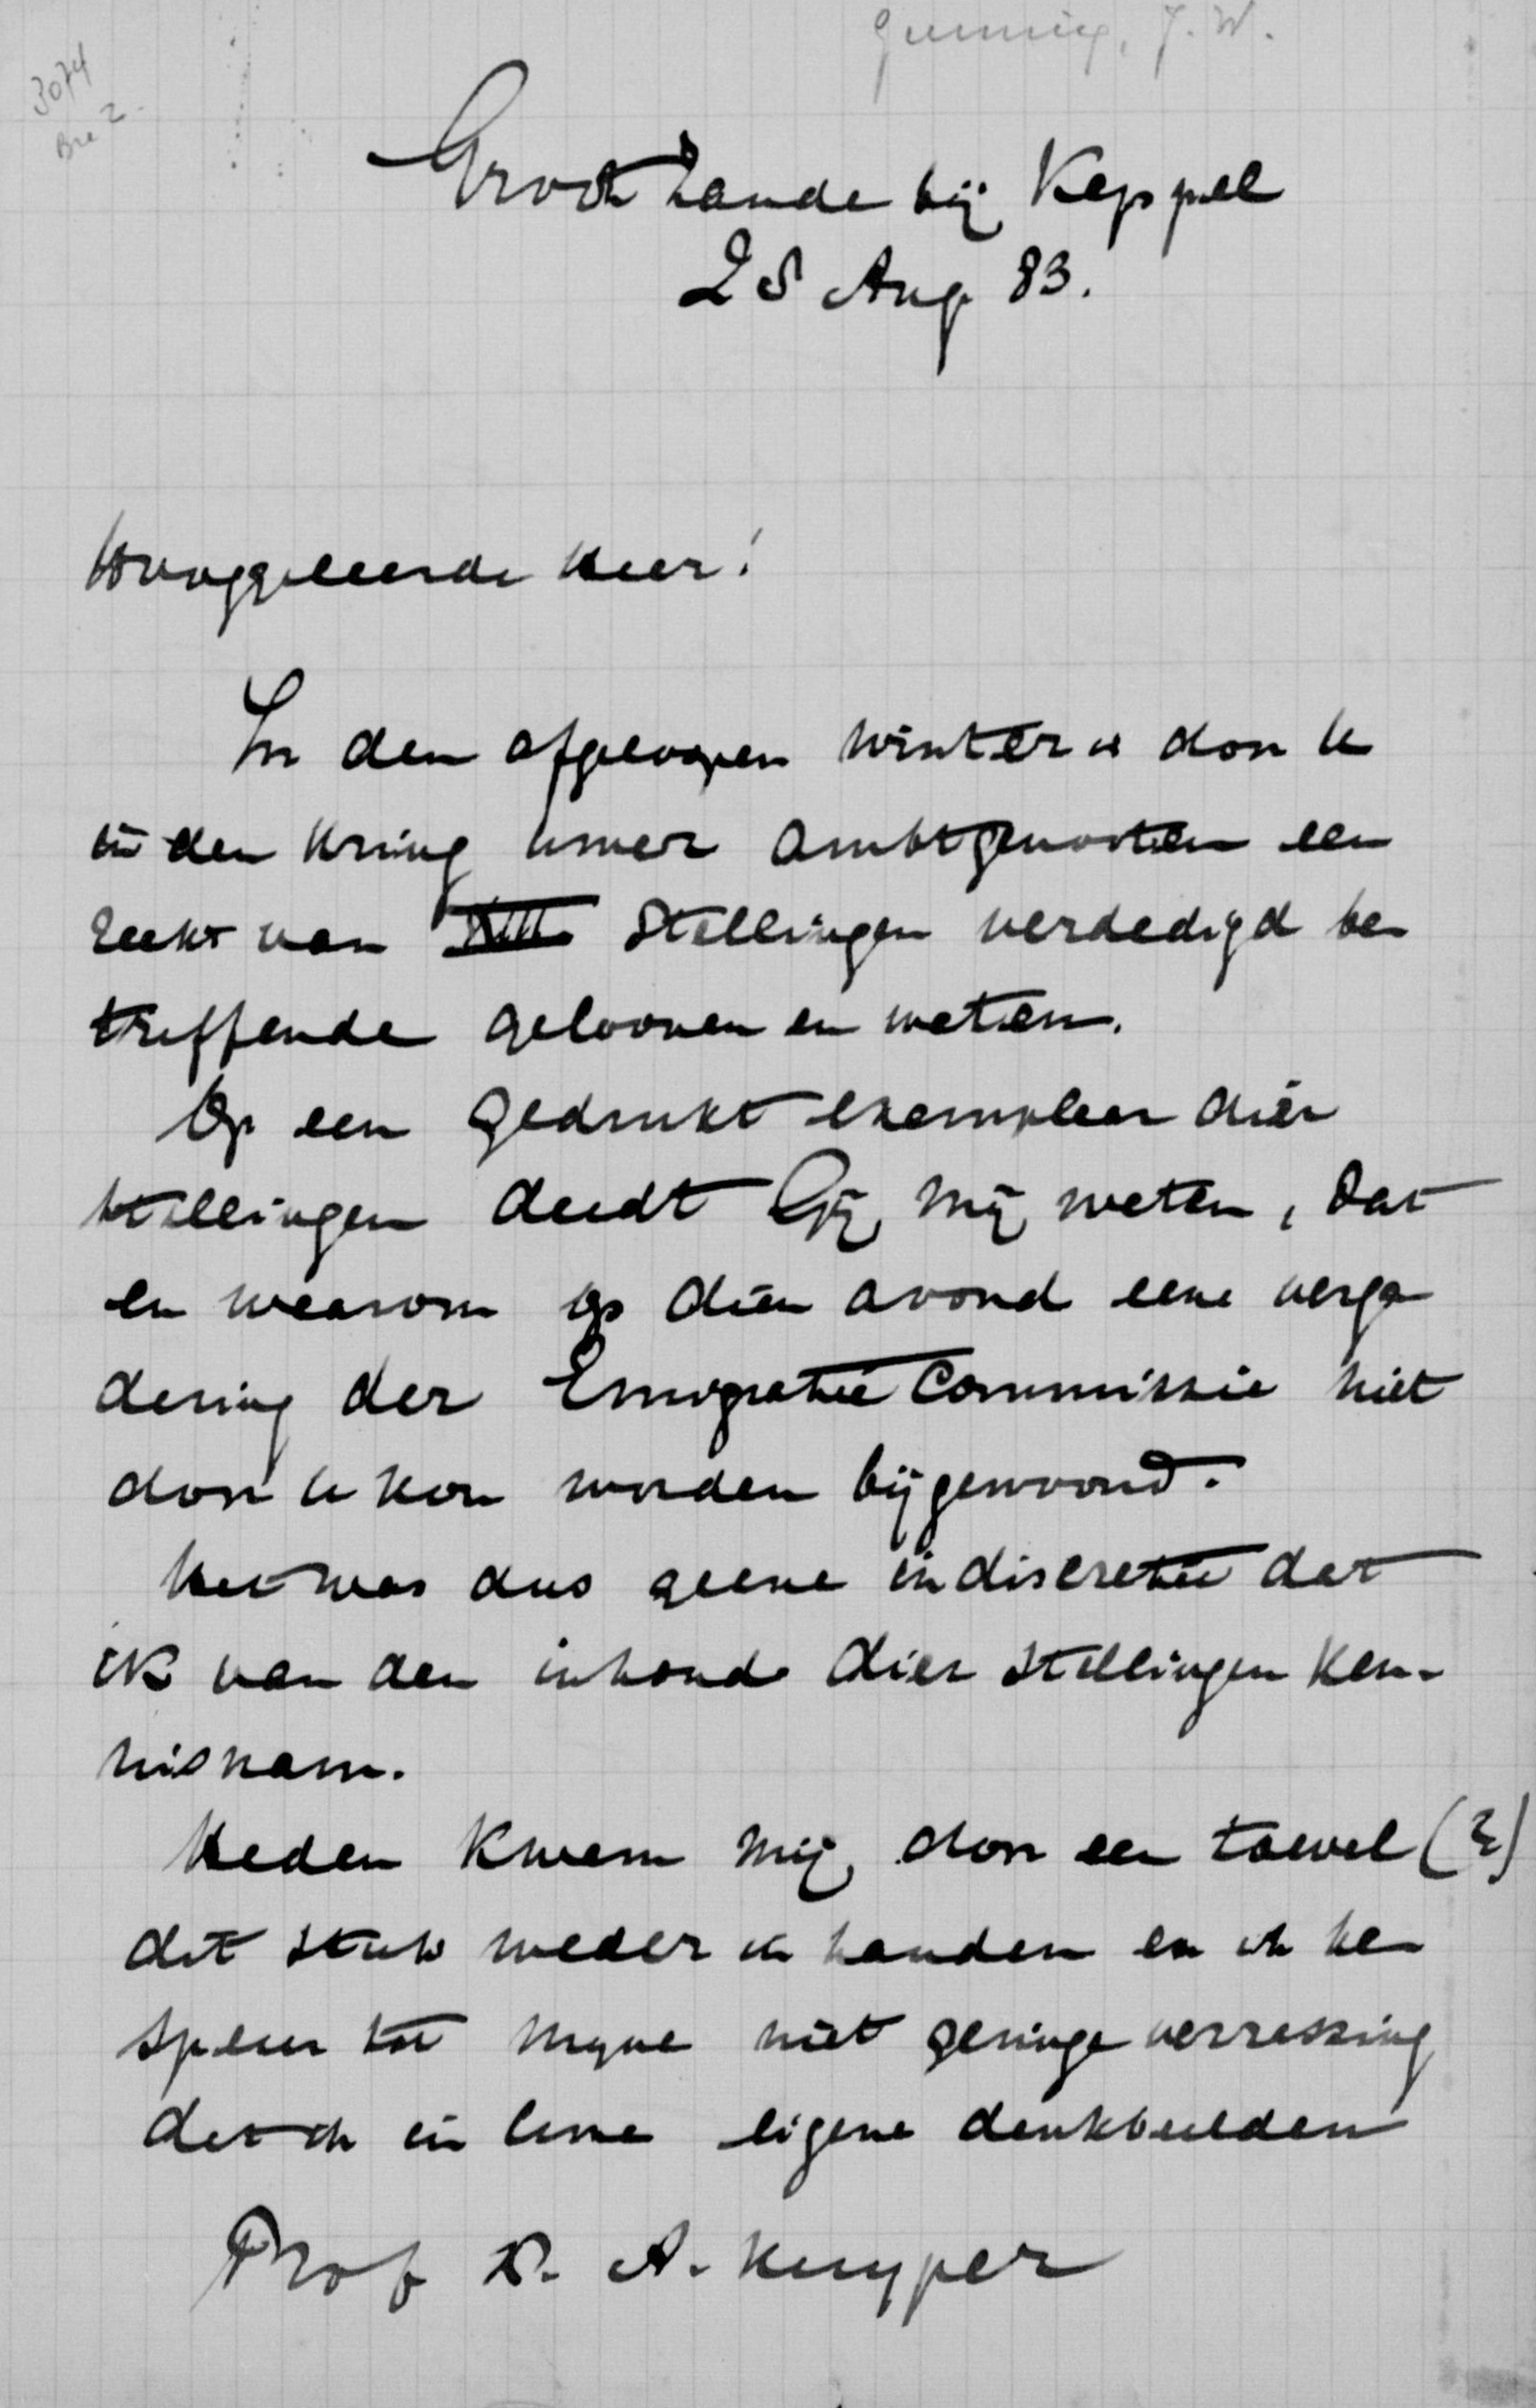 Gunning, J. W.
3074
Groot Zande bij Keppel
25 Aug 83.
Hooggeleerde Heer!
In den afgeloopen winter is door u
in den kring uwer ambtgenooten een
reeks van XIII Stellingen verdedigd be
treffende gelooven en weten.
Op een gedrukt exemplaar dier
stellingen deedt Gij mij weten, dat
en waarom op dien avond eene verga
dering der Emigratie Commissie niet
door u kon worden bijgewoond.
Het was dus geene indiscretie dat
ik van den inhoud dier stellingen ken-
nis nam.
Heden kwam mij door een toeval (?)
dit stuk weder in handen en ik be
speur tot mijne niet geringe verrassing
dat ik in uwe eigene denkbeelden
Prof Dr. A. Kuyper